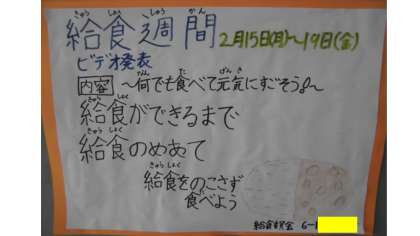 給食週間 2月15日(月)〜19日(金)
ビデオ発表
内容 〜何でも食べて元気にすごそう〜
給食ができるまで
給食のめあて
給食をのこさず
食べよう
給食委員会 6-1